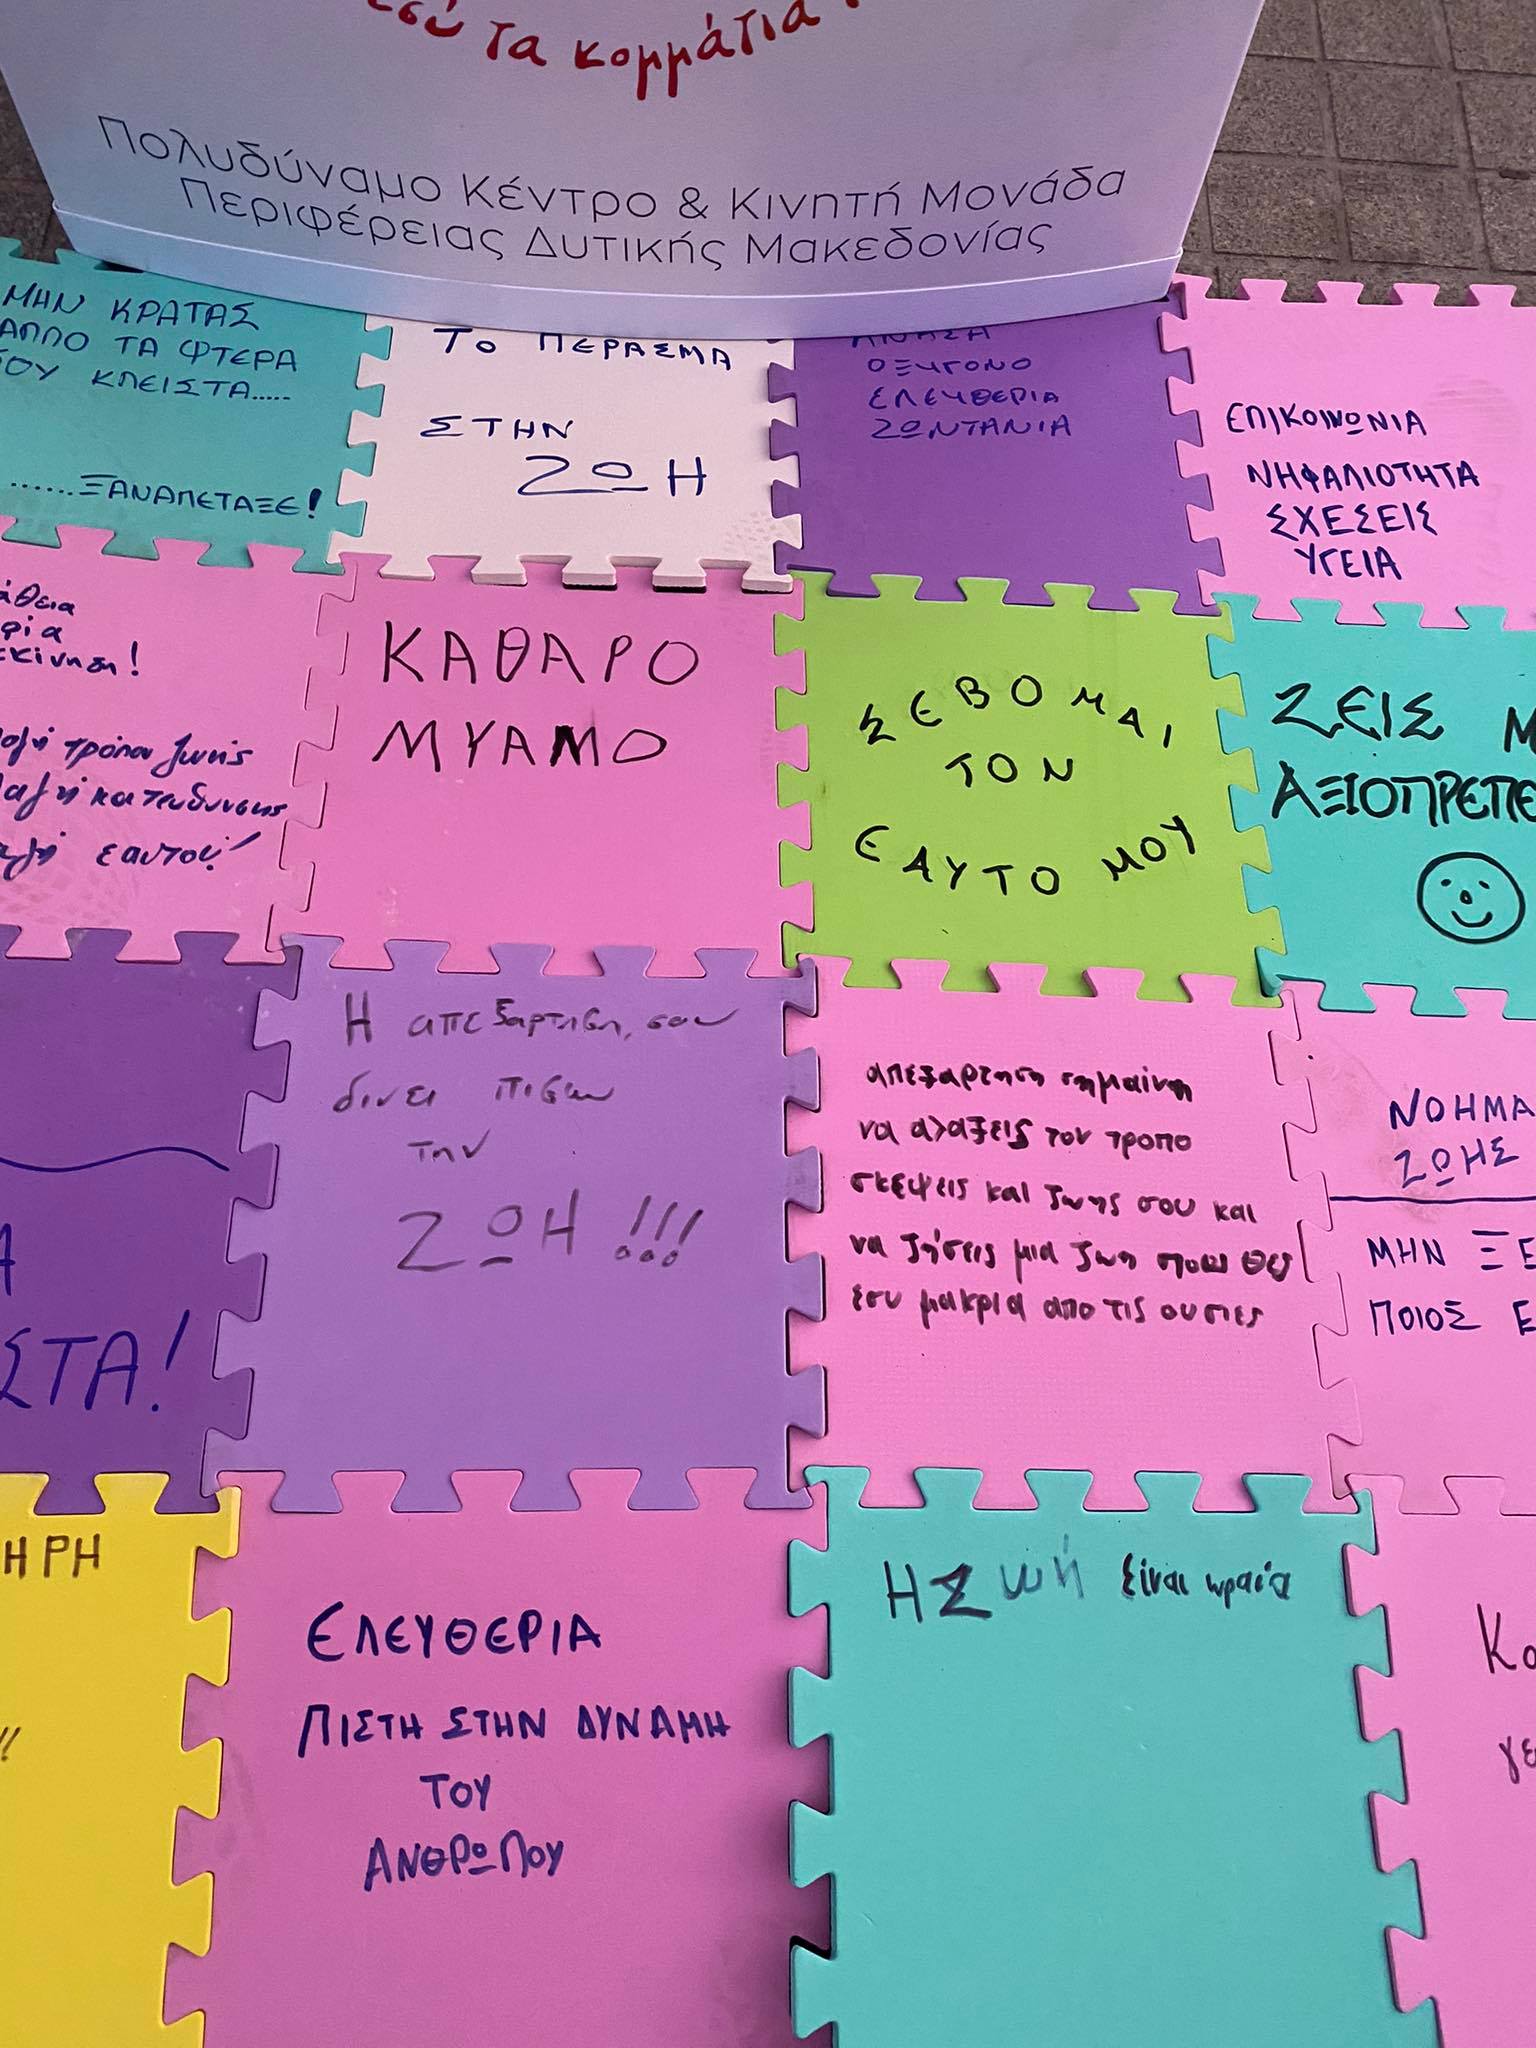 τα κομμάτια
Πολυδύναμο Κέντρο & Κινητή Μονάδα
Περιφέρειας Δυτικής Μακεδονίας
ΜΗΝ ΚΡΑΤΑΣ
ΑΛΛΟ ΤΑ ΦΤΕΡΑ
ΣΟΥ ΚΛΕΙΣΤΑ.....
......ΞΑΝΑΠΕΤΑΞΕ!
ΤΟ ΠΕΡΑΣΜΑ
ΣΤΗΝ
ΖΩΗ
ΑΝΑΣΑ
ΟΞΥΓΟΝΟ
ΕΛΕΥΘΕΡΙΑ
ΖΩΝΤΑΝΙΑ
ΕΠΙΚΟΙΝΩΝΙΑ
ΝΗΦΑΛΙΟΤΗΤΑ
ΣΧΕΣΕΙΣ
ΥΓΕΙΑ
τρόπου ζωής
κατευθυνσης
εαυτού!
ΚΑΘΑΡΟ
ΜΥΑΛΟ
ΣΕΒΟΜΑΙ
ΤΟΝ
ΕΑΥΤΟ ΜΟΥ
ΖΕΙΣ Μ
ΑΞΙΟΠΡΕΠΕ
ΣΤΑ!
Η απεξαρτηση, σου
δινει πισω
την
ΖΩΗ !!!
απεξαρτηση σημαίνη
να αλαξεις τον τροπο
σκεψεις και ζωης σου και
να ζήσεις μια ζωη οπως θες
εσυ μακρια απο τις ουσιες
ΝΟΗΜΑ
ΖΩΗΣ
ΜΗΝ ΞΕ
ΠΟΙΟΣ Ε
ΗΡΗ
!!
ΕΛΕΥΘΕΡΙΑ
ΠΙΣΤΗ ΣΤΗΝ ΔΥΝΑΜΗ
ΤΟΥ
ΑΝΘΡΩΠΟΥ
Η Ζωή είναι ωραία
Κα
γε